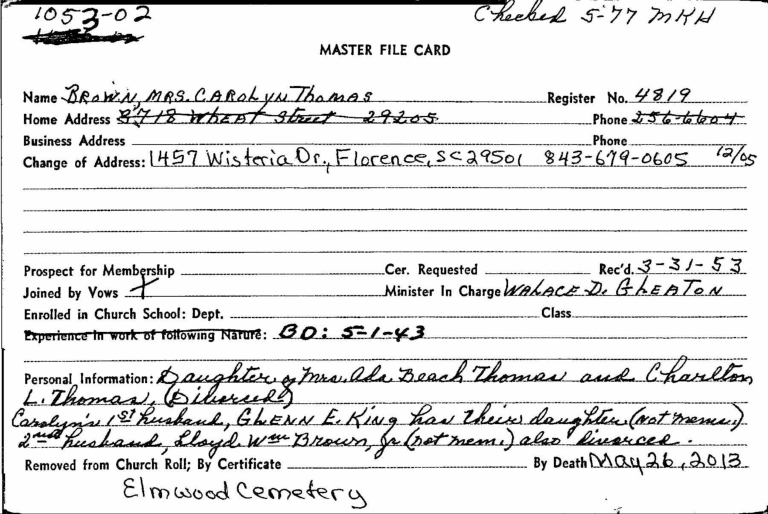 1053-02
Checked 5-77 MKH
MASTER FILE CARD
Name BROWN, MRS. CAROLYN THOMAS Register No. 4819
Home Address 3718 Wheat Street 29205 Phone 256-6604
Business Address Phone
Change of Address: 1457 Wisteria Dr., Florence, SC 29501 843-679-0605 12/05
Prospect for Membership Cer. Requested Rec'd. 3-31-53
Joined by Vows X Minister In Charge WALACE D. GLEATON
Enrolled in Church School: Dept. Class
Experience in work of following Nature: BD: 5-1-43
Personal Information: Daughter of Mrs. Ada Beach Thomas and Charlton
L. Thomas, (Divorced)
Carolyn's 1st husband, GLENN E. KING has their daughter. (not mems.)
2nd husband, Lloyd Wm Brown, Jr (not mem.) also divorced.
Removed from Church Roll; By Certificate By Death May 26, 2013
Elmwood Cemetery